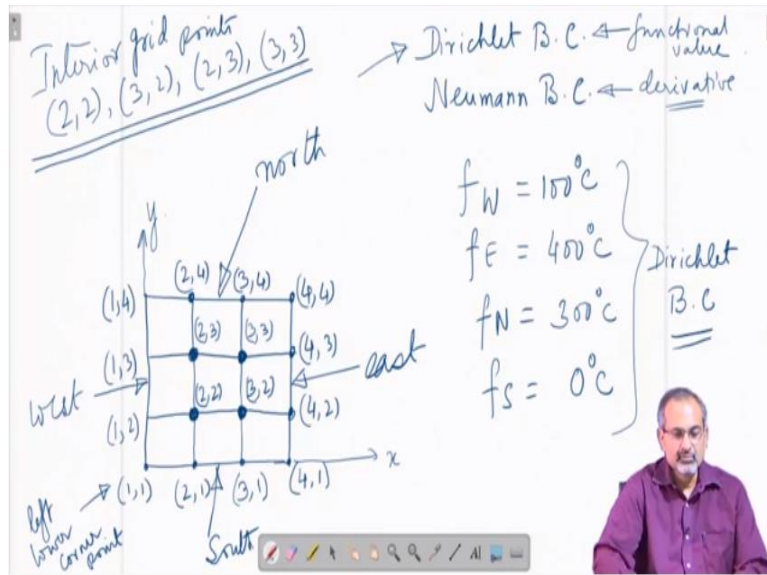 Interior grid points
(2,2), (3,2), (2,3), (3,3)
Dirichlet B.C. ← functional value
Neumann B.C. ← derivative
north
y
(2,4) (3,4) (4,4)
(1,4)
(2,3) (3,3) (4,3)
(1,3)
west
east
(2,2) (3,2) (4,2)
(1,2)
x
(1,1) (2,1) (3,1) (4,1)
left
lower
corner
point
South
fW = 100°C
fE = 400°C
fN = 300°C
fS = 0°C
Dirichlet
B.C
AI